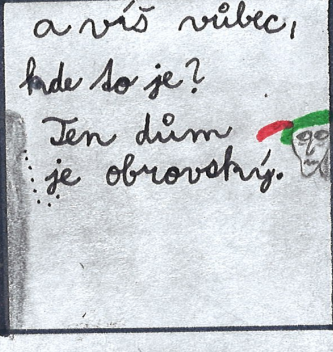 a víš vůbec,
kde to je?
Ten dům
je obrovský.